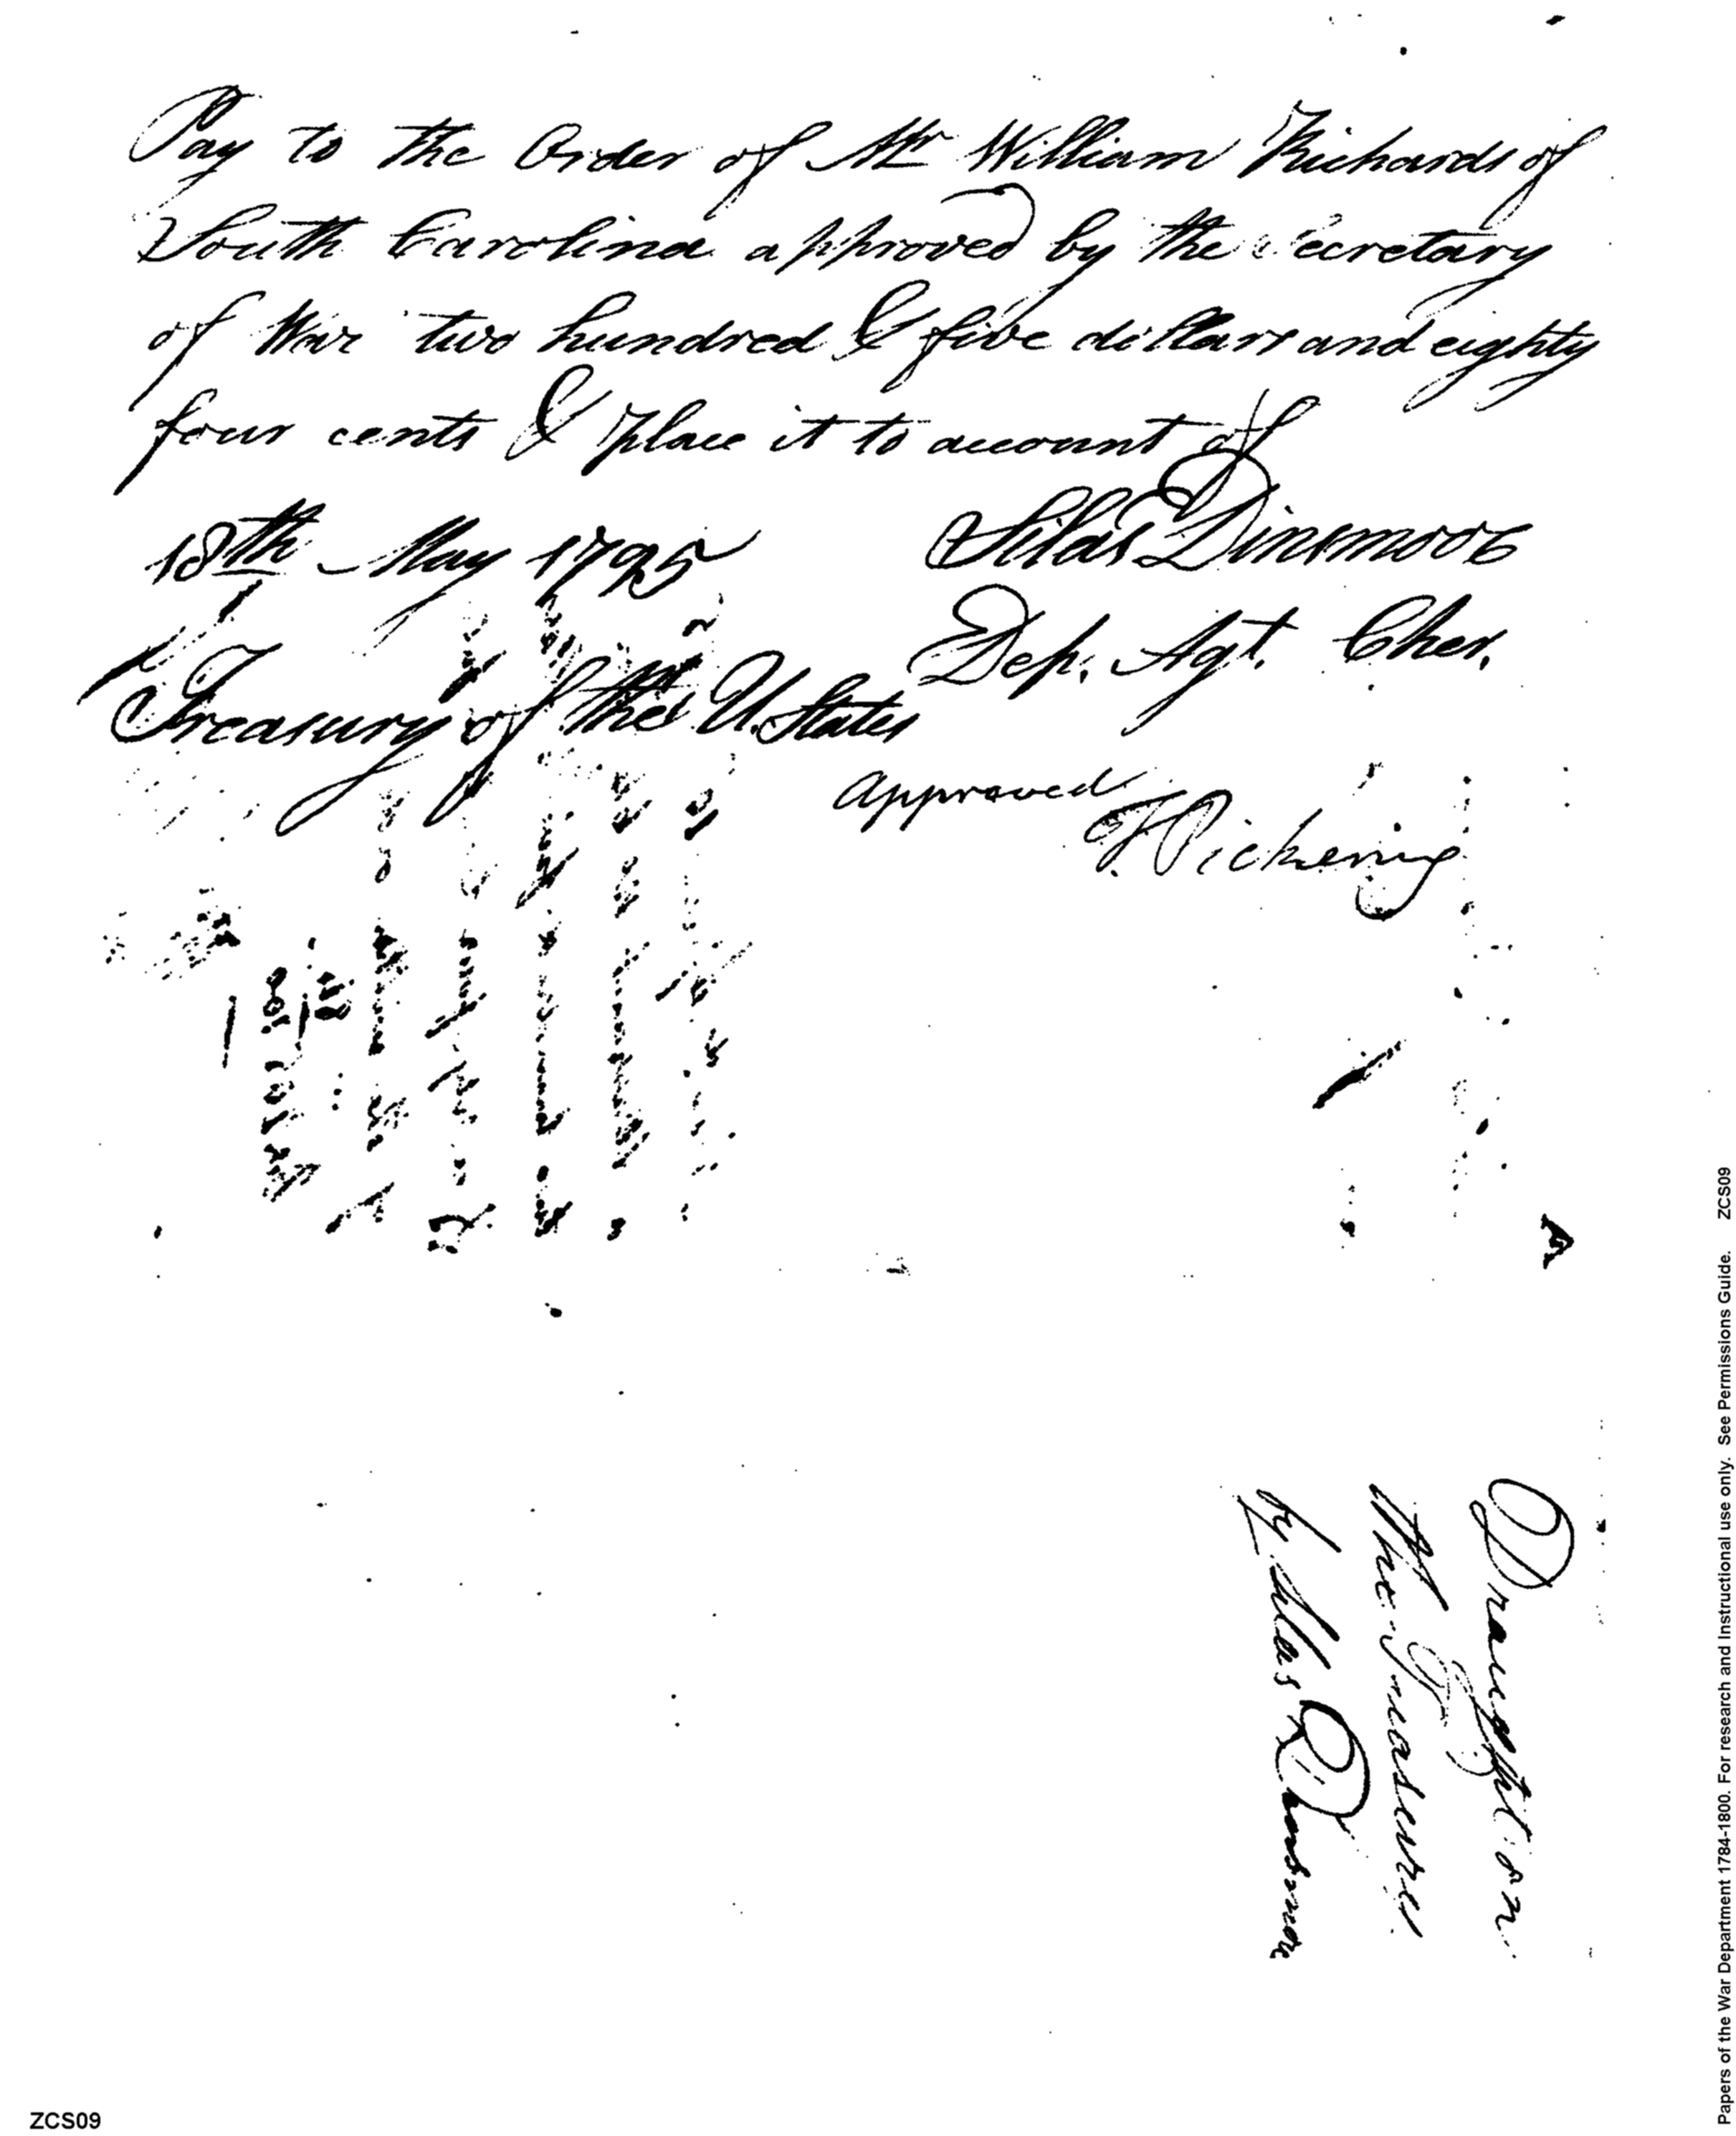 Pay to the Order of Mr William Richards of
South Carolina approved by the Secretary
of War two hundred & five dollars and eighty
four cents & place it to account of
18th May 1795
Silas Dinsmoor
Dep. Agt. Cher.
Treasury of the U. States
approved
T. Pickering
Draught on
the Treasurer
by Silas Dinsmoor
Papers of the War Department 1784-1800. For research and Instructional use only. See Permissions Guide. ZCS09
ZCS09